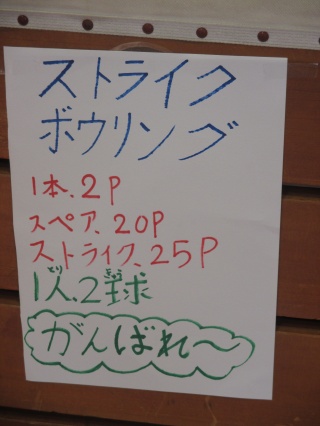 ストライク
ボウリング
1本、2P
スペア、20P
ストライク、25P
1人、2球
がんばれ〜